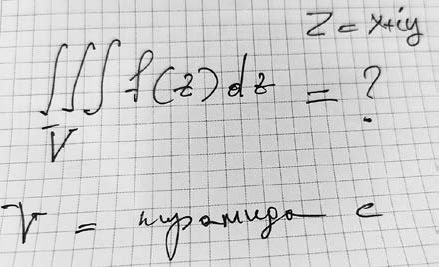 z = x+iy
∭ f(z) dz = ?
V
V = пирамида с